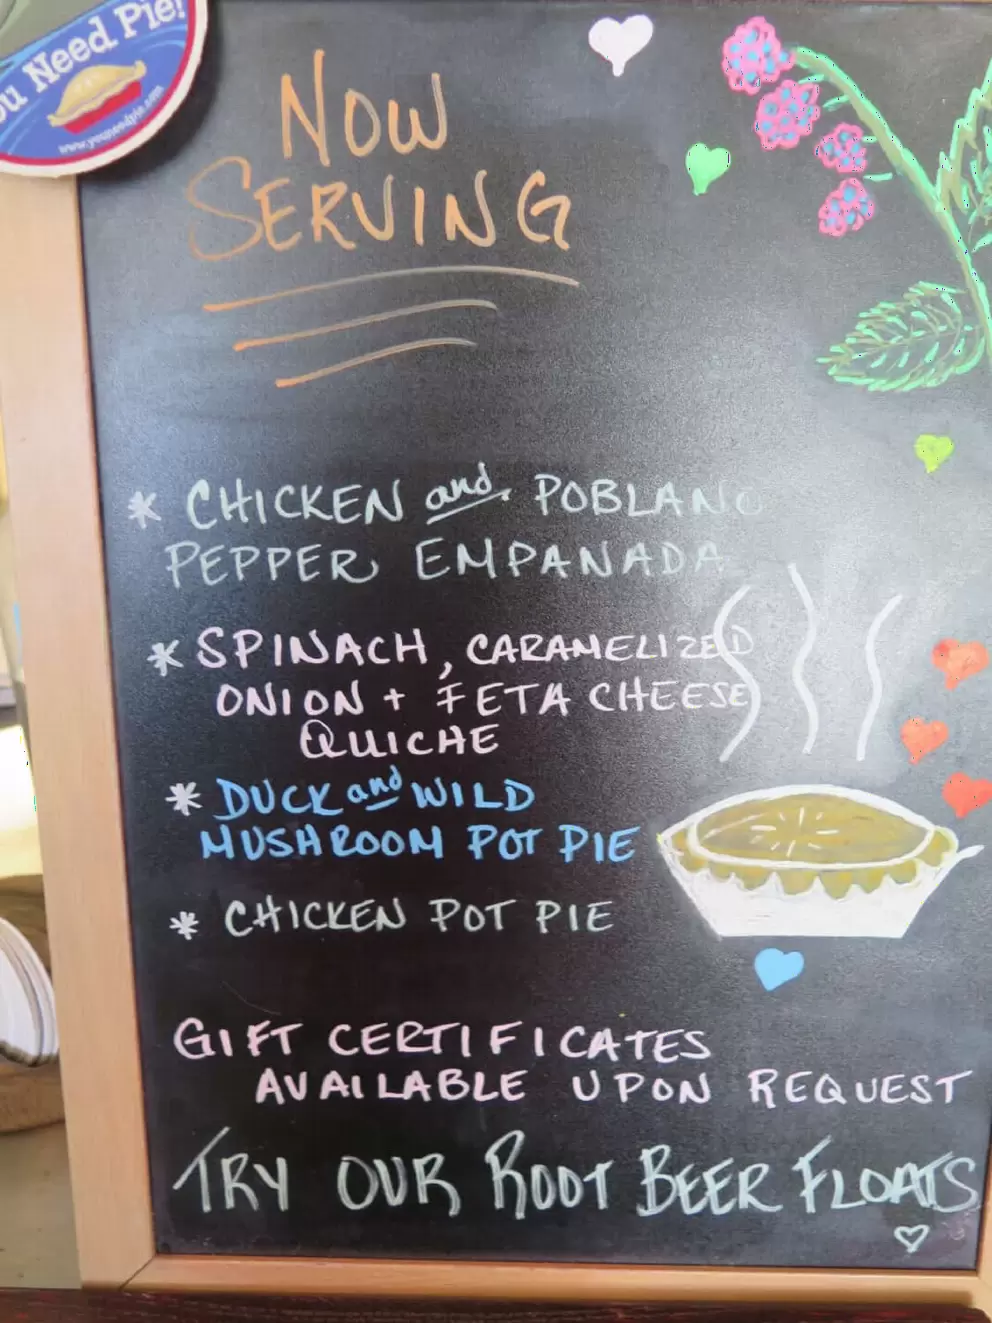 ou Need Pie!
www.youneedpie.com
NOW
SERVING
* CHICKEN and POBLANO
PEPPER EMPANADA
* SPINACH, CARAMELIZED
ONION + FETA CHEESE
QUICHE
* DUCK and WILD
MUSHROOM POT PIE
* CHICKEN POT PIE
GIFT CERTIFICATES
AVAILABLE UPON REQUEST
TRY OUR ROOT BEER FLOATS